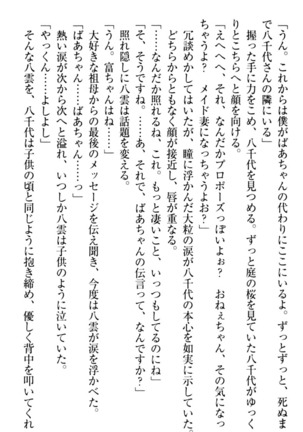 「うん。これからは僕がばあちゃんの代わりにここにいるよ。ずっとずっと、死ぬま
で八千代さんの隣にいる」
　握った手に力をこめ、八千代を見つめる。ずっと庭の桜を見ていた八千代がゆっく
りとこちらへと顔を向ける。
「えへへへ、それ、なんだかプロポーズっぽいよぉ？　おねぇちゃん、その気になっ
ちゃうよ？　メイド妻になっちゃうよぉ？」
　冗談めかしてはいたが、瞳に浮かんだ大粒の涙が八千代の本心を如実に示していた。
どちらからともなく顔が接近し、唇が重なる。
「……なんだか照れるね、これ。もっと凄いこと、いっつもしてるのにね」
「そ、そうですね。……あ、それで、ばあちゃんの伝言って、なんですか？」
　照れ隠しに八雲は話題を変える。
「うん。富ちゃんはね……」
　大好きな祖母からの最後のメッセージを伝え聞き、今度は八雲が涙を浮かべた。
「ばあちゃん……ばあちゃん……っ」
　熱い涙が次から次へと溢れ、いつしか八雲は子供のように泣いていた。
「やっくん……よしよし」
　そんな八雲を、八千代は子供の頃と同じように抱き締め、優しく背中を叩いてくれ